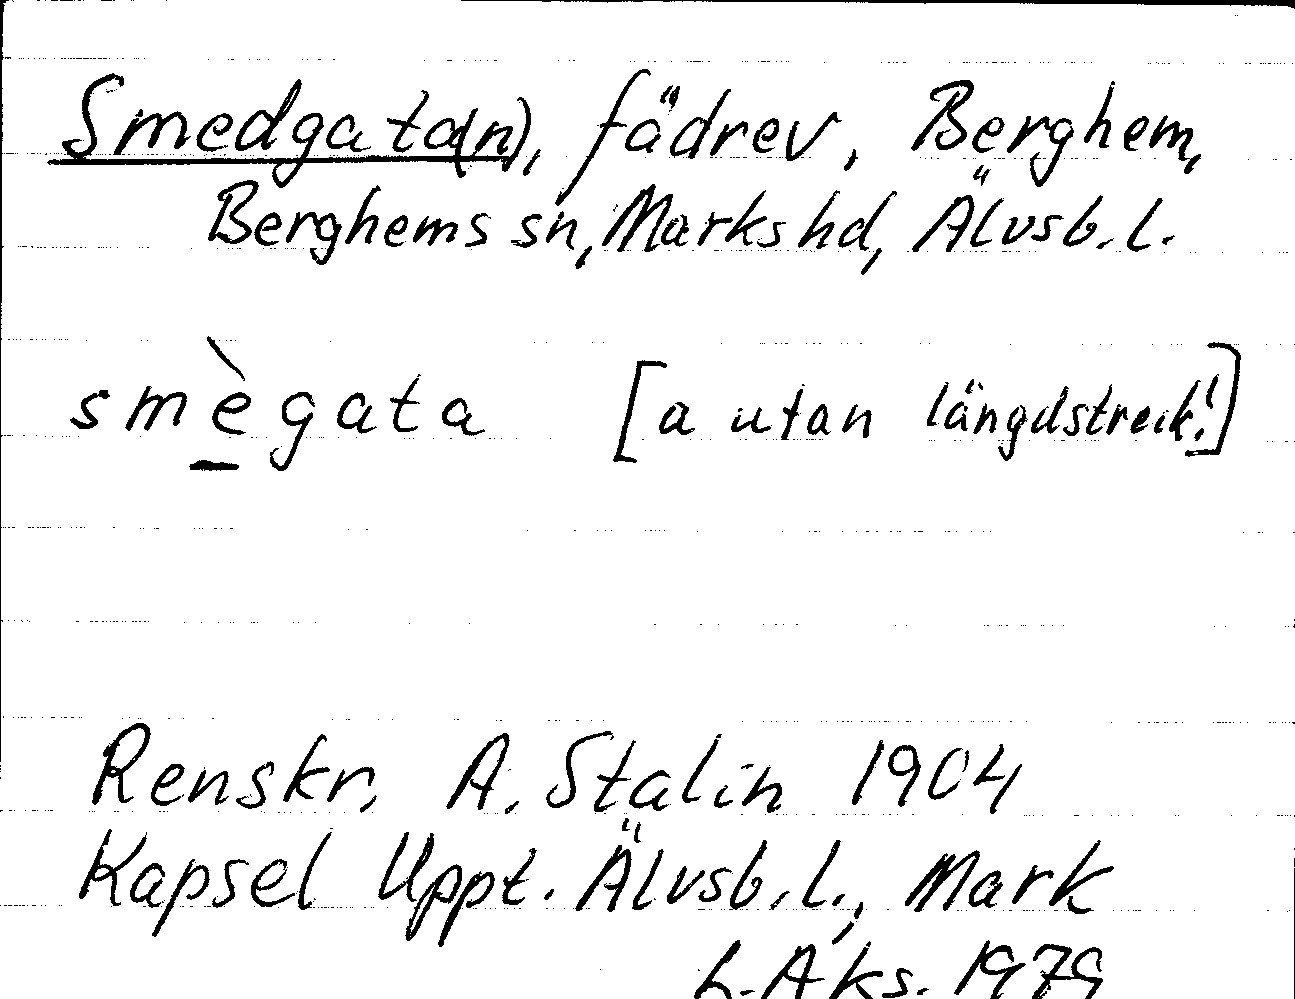 Smedgata(n), fädrev, Berghem,
Berghems sn, Marks hd, Älvsb. l.
smègata [a utan längdstreck!]
Renskr. A. Stalin 1904
Kapsel Uppt. Älvsb. l., Mark
L. Aks. 1979